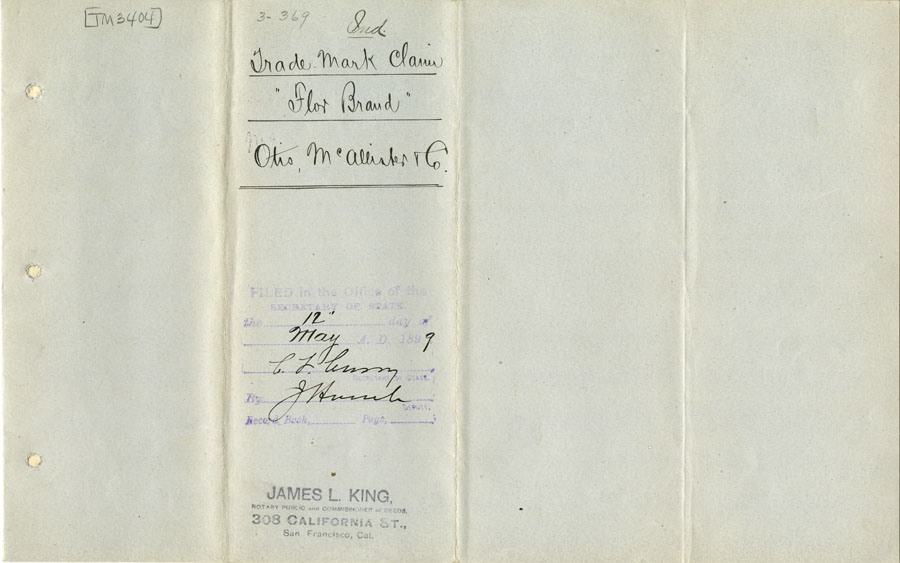 [TM3404]
3-369
Ind.
Trade Mark Claim
"Flor Brand"
Otis, McAllister & Co.
FILED in the Office of the
SECRETARY OF STATE
the 12" day of
May A. D. 1899
C. F. Curry
SECRETARY OF STATE
By J Hoesch
DEPUTY.
Record Book, Page,
JAMES L. KING,
NOTARY PUBLIC and COMMISSIONER of DEEDS,
308 CALIFORNIA ST.,
San Francisco, Cal.